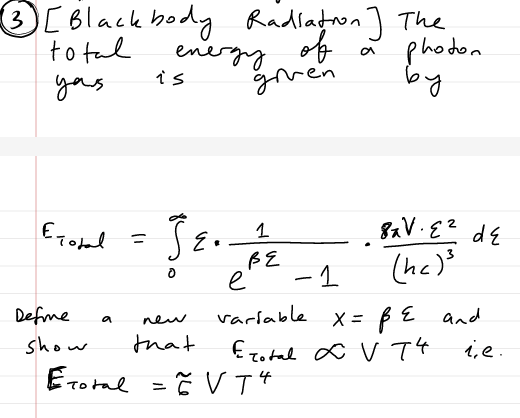 ③ [Blackbody Radiation] The
total energy of a photon
gas is given by
E_Total = ∫₀^∞ ε · 1/(e^{βε} − 1) · 8πV·ε²/(hc)³ dε
Define a new variable x = βε and
show that E_Total ∝ V T⁴ i.e.
E_Total = σ̃ V T⁴